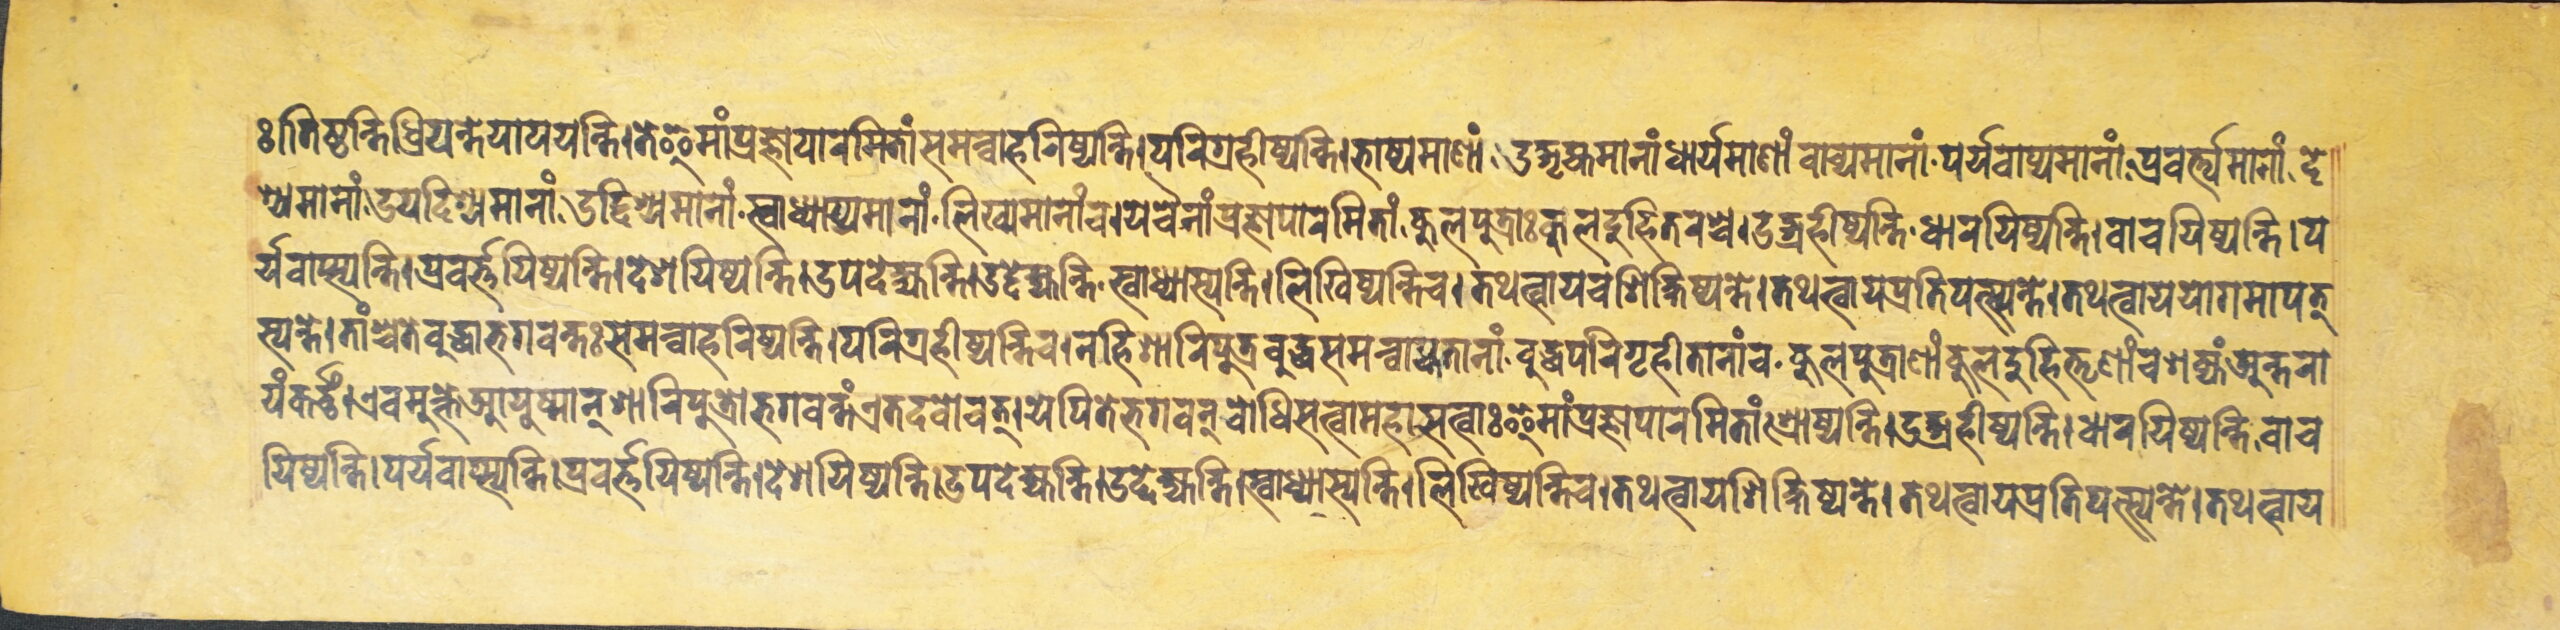 ः।तिष्ठन्तिध्रियन्तेयापयन्ति।तेइमांप्रज्ञापारमितांसमन्वाहरिष्यन्ति।परिग्रहीष्यन्ति।भाष्यमाणां॰उद्गृह्यमानांधार्यमाणांवाच्यमानां॰पर्यवाप्यमानां॰प्रवर्त्त्यमानां॰दे
श्यमानां॰उपदिश्यमानां॰उद्दिश्यमानां॰स्वाध्याय्यमानां॰लिख्यमानांच।येचैनांप्रज्ञापारमितां॰कुलपुत्राःकुलदुहितरश्च।उद्ग्रहीष्यन्ति॰धारयिष्यन्ति।वाचयिष्यन्ति।प
र्यवाप्स्यन्ति।प्रवर्त्तयिष्यन्ति।देशयिष्यन्ति।उपदेक्ष्यन्ति।उद्देक्ष्यन्ति॰स्वाध्यास्यन्ति।लिखिष्यन्तिच।तथत्वायचशिक्षिष्यन्ते।तथत्वायप्रतिपत्स्यन्ते।तथत्वाययोगमापत्
स्यन्ते।तांश्चतेबुद्धाभगवन्तःसमन्वाहरिष्यन्ति।परिग्रहीष्यन्तिच।नहिशारिपुत्रबुद्धसमन्वाहृतानां॰बुद्धपरिगृहीतानांच॰कुलपुत्राणांकुलदुहितृणांचशक्यंअन्तरा
यंकर्त्तुं।एवमुक्तेआयुष्मान्शारिपुत्रोभगवन्तंएतदवोचत्।येपितेभगवन्बोधिसत्वामहासत्वाःइमांप्रज्ञापारमितांश्रोष्यन्ति।उद्ग्रहीष्यन्ति।धारयिष्यन्ति॰वाच
यिष्यन्ति।पर्यवाप्स्यन्ति।प्रवर्त्तयिष्यन्ति।देशयिष्यन्ति।उपदेक्ष्यन्ति।उद्देक्ष्यन्ति।स्वाध्यास्यन्ति।लिखिष्यन्तिच।तथत्वायशिक्षिष्यन्ते।तथत्वायप्रतिपत्स्यन्ते।तथत्वाय